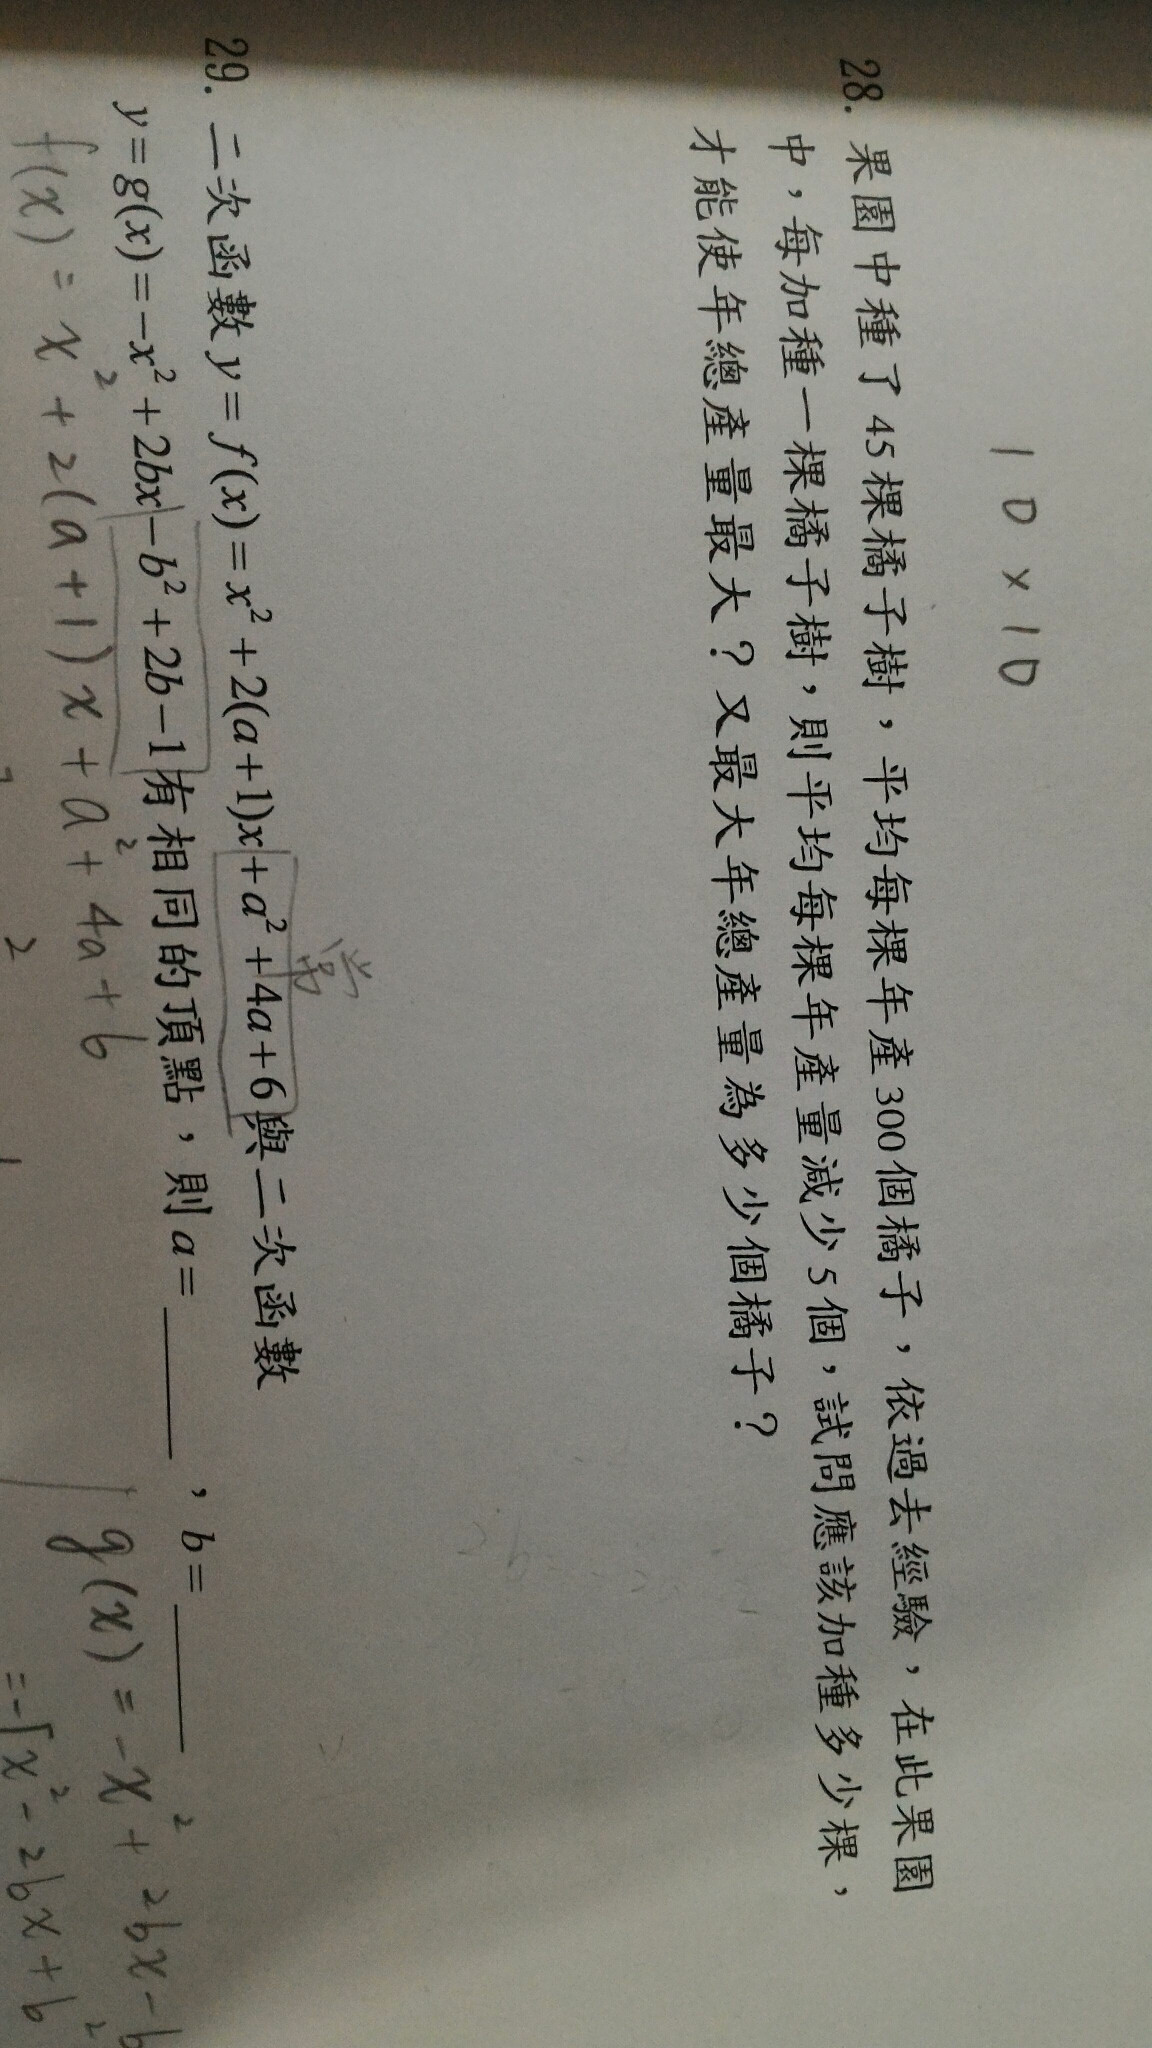 10×10
28. 果園中種了45棵橘子樹，平均每棵年產300個橘子，依過去經驗，在此果園
中，每加種一棵橘子樹，則平均每棵年產量減少5個，試問應該加種多少棵，
才能使年總產量最大？又最大年總產量為多少個橘子？
常
29. 二次函數y=f(x)=x²+2(a+1)x+a²+4a+6與二次函數
y=g(x)=-x²+2bx-b²+2b-1有相同的頂點，則a=______，b=______
f(x)=x²+2(a+1)x+a²+4a+6
g(x)=-x²+2bx-b
=-[x²-2bx+b²